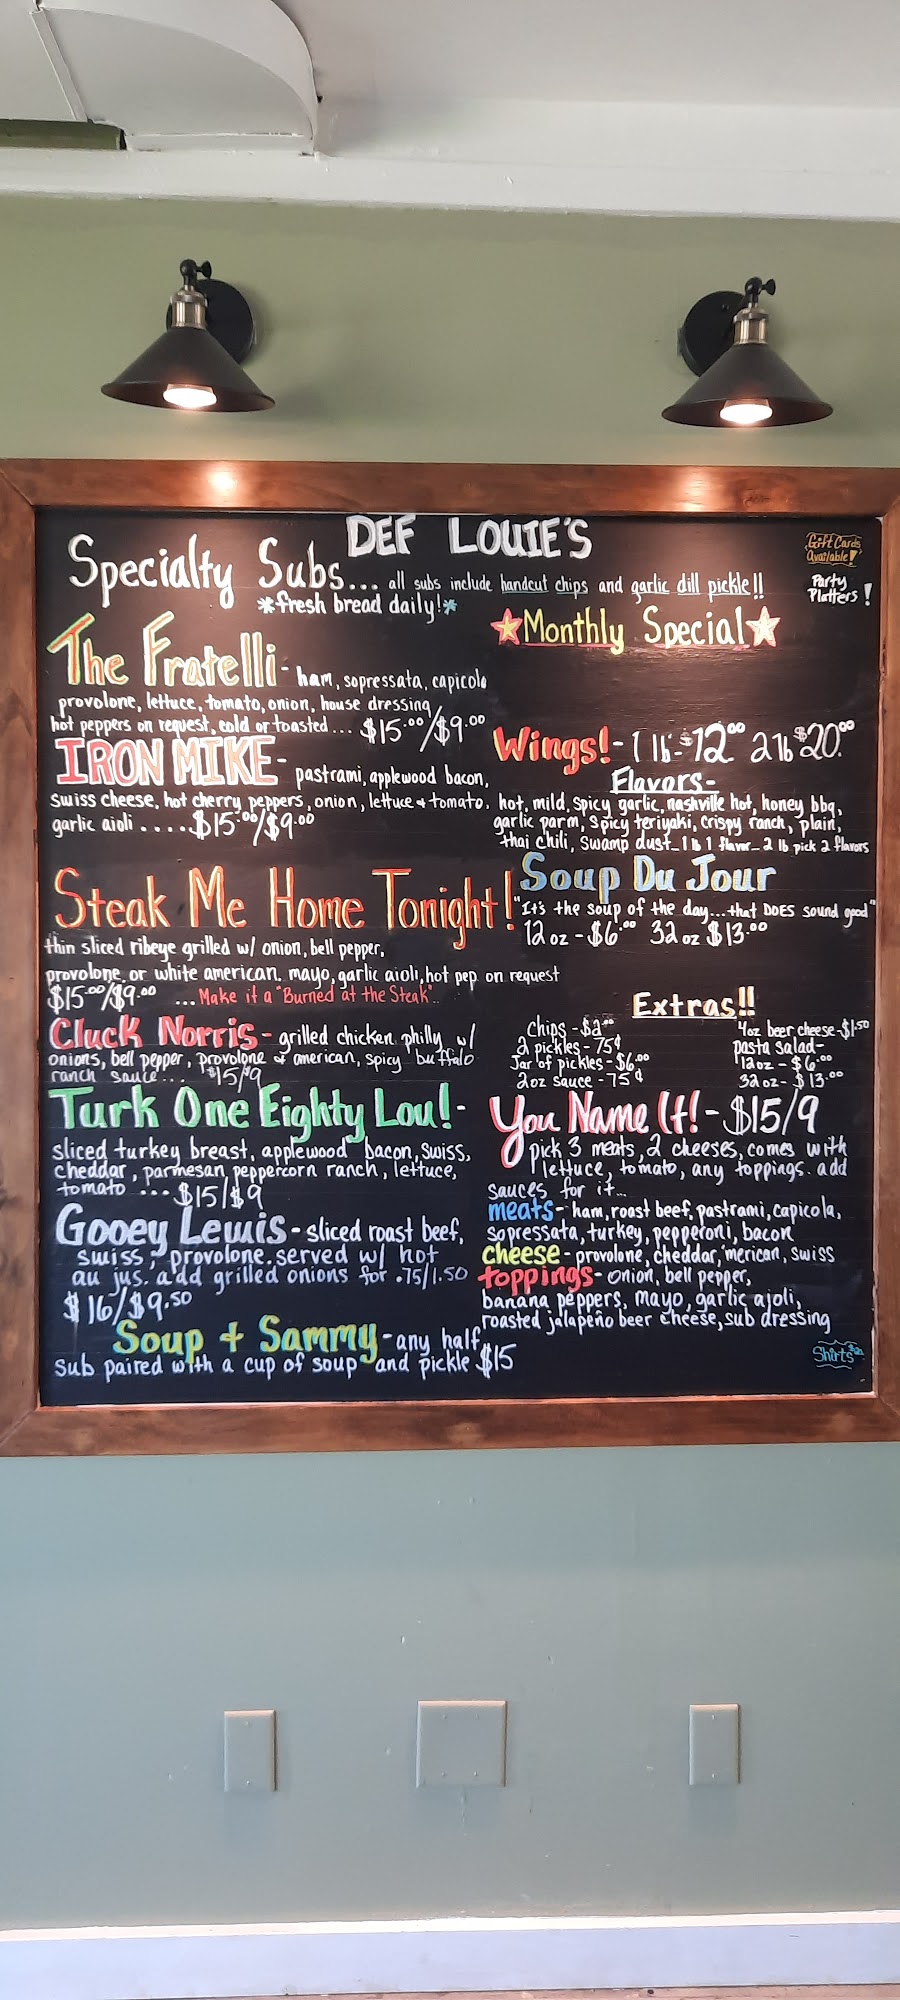 DEF LOUIE'S
Specialty Subs... all subs include handcut chips and garlic dill pickle!!
*fresh bread daily!*
Gift Cards
Available!
Party
Platters!
The Fratelli - ham, sopressata, capicola
provolone, lettuce, tomato, onion, house dressing
hot peppers on request, cold or toasted... $15.00/$9.00
IRON MIKE - pastrami, applewood bacon,
swiss cheese, hot cherry peppers, onion, lettuce + tomato,
garlic aioli.....$15.00/$9.00
Steak Me Home Tonight!
thin sliced ribeye grilled w/ onion, bell pepper,
provolone or white american. mayo, garlic aioli, hot pep. on request
$15.00/$9.00 ...Make it a "Burned at the Steak"..
Cluck Norris - grilled chicken philly w/
onions, bell pepper, provolone & american, spicy buffalo
ranch sauce... $15/9
Turk One Eighty Lou! -
sliced turkey breast, applewood bacon, swiss,
cheddar, parmesan peppercorn ranch, lettuce,
tomato ... $15/$9
Gooey Lewis - sliced roast beef,
swiss, provolone. served w/ hot
au jus. add grilled onions for .75/1.50
$16/$9.50
Soup + Sammy - any half
sub paired with a cup of soup and pickle $15
Monthly Special
Wings! - 1 lb - $12.00 2 lb $20.00
Flavors -
hot, mild, spicy garlic, nashville hot, honey bbq,
garlic parm, spicy teriyaki, crispy ranch, plain,
thai chili, swamp dust - 1 lb 1 flavor - 2 lb pick 2 flavors
Soup Du Jour
"It's the soup of the day...that DOES sound good"
12 oz - $6.00 32 oz $13.00
Extras!!
Chips - $2.00
2 pickles - 75¢
Jar of pickles - $6.00
2oz sauce - 75¢
4oz beer cheese - $1.50
pasta salad -
12oz - $6.00
32oz - $13.00
You Name It! - $15/9
pick 3 meats, 2 cheeses, comes with
lettuce, tomato, any toppings. add
sauces for it...
meats - ham, roast beef, pastrami, capicola,
sopressata, turkey, pepperoni, bacon
cheese - provolone, cheddar, 'merican, swiss
toppings - onion, bell pepper,
banana peppers, mayo, garlic aioli,
roasted jalapeño beer cheese, sub dressing
Shirts